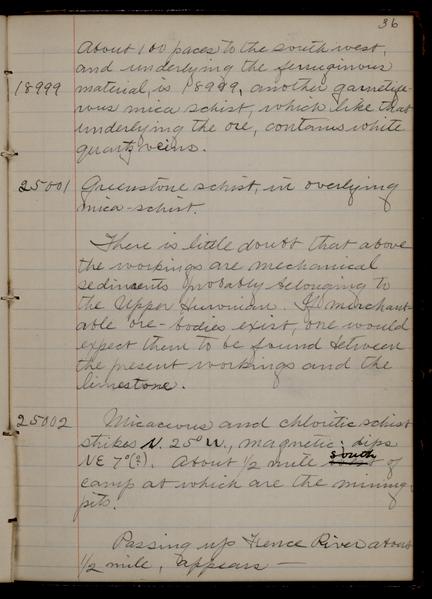 36
About 100 paces to the south west,
and underlying the ferruginous
18999 material, is 18999, another garnetife-
rous mica schist, which like that
underlying the ore, contains white
quartz veins.
25001 Greenstone schist, in overlying
mica-schist.
There is little doubt that above
the workings are mechanical
sediments probably belonging to
the Upper Huronian. If merchant-
able ore-bodies exist, one would
expect them to be found between
the present workings and the
limestone.
25002 Micaceous and chloritic schist
strikes N. 25° W., magnetic; dips
NE 7°(?). About 1/2 mile south of
camp at which are the mining
pits.
Passing up Fence River about
1/2 mile, appears —